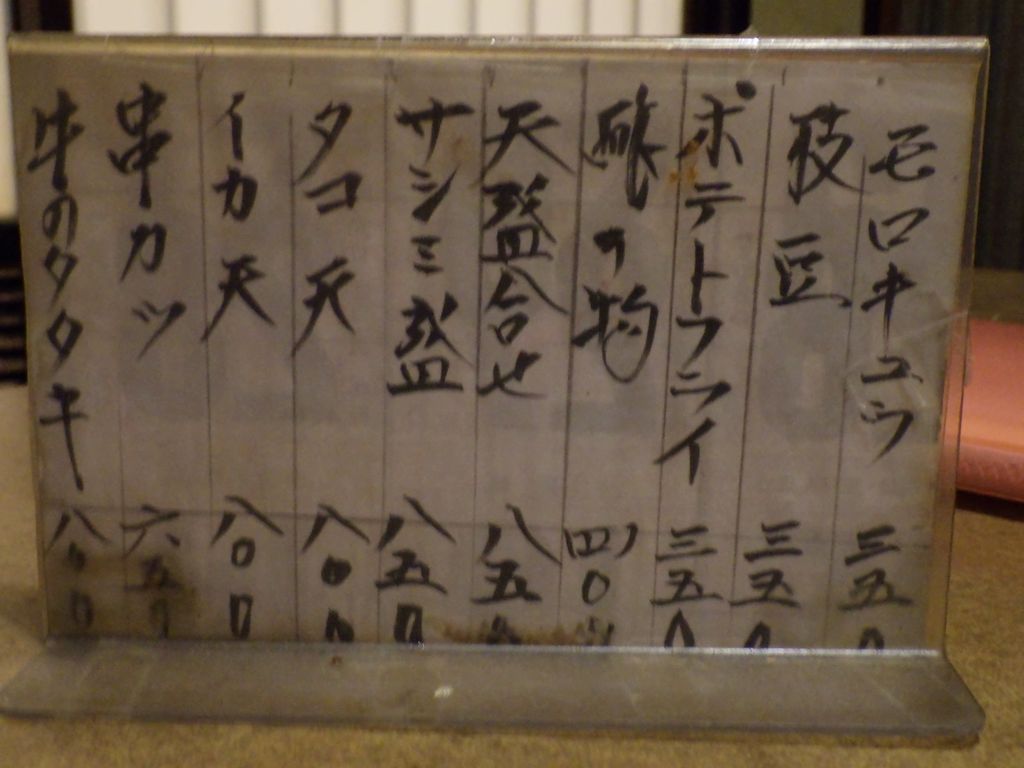 モロキュウ 三五〇
枝豆 三五〇
ポテトフライ 三五〇
酢の物 四〇〇
天盛合せ 八五〇
サシミ盛 八五〇
タコ天 八〇〇
イカ天 八〇〇
串カツ 六五〇
牛のタタキ 八〇〇